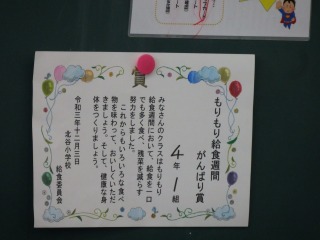 賞
もりもり給食週間
がんばり賞
4年1組
みなさんのクラスはもりもり
給食週間において、給食を一口
でも多く食べ、残菜を減らす
努力をしました。
これからもいろいろな食べ
物を味わって、おいしくいただ
きましょう。そして、健康な身
体をつくりましょう。
令和三年十二月三日
北谷小学校
給食委員会